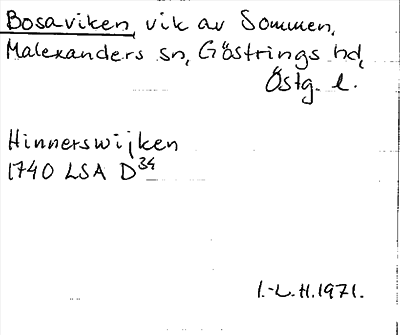 Bosaviken, vik av Sommen,
Malexanders sn, Göstrings hd,
Östg. l.
Hinnerswijken
1740 LSA D34
I.-L.H.1971.